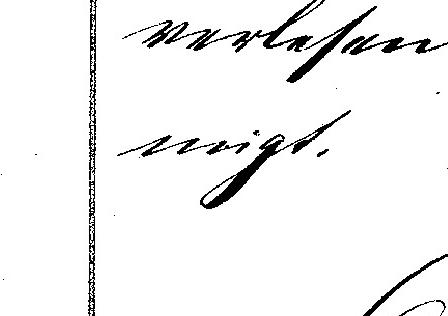 verlesen
migt.